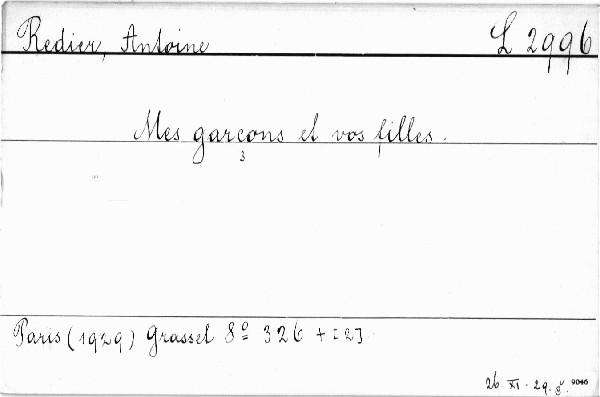 Redier, Antoine L 2996
Mes garçons et vos filles.
Paris (1929) Grasset 8º 326 + [2]
26. XI. 29. 9046